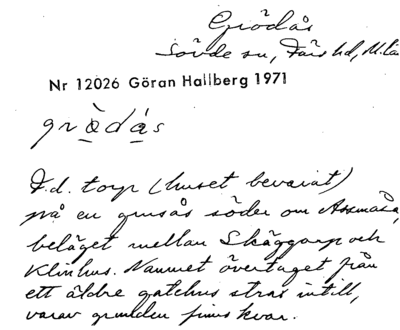 Grödås
Sövde sn, Färs hd, M.län
Nr 12026 Göran Hallberg 1971
grö̀dás
F.d. torp (huset bevarat)
på en grusås söder om Assmåsa,
beläget mellan Skäggarp och
Klinhus. Namnet övertaget från
ett äldre gatehus strax intill,
varav grunden finns kvar.